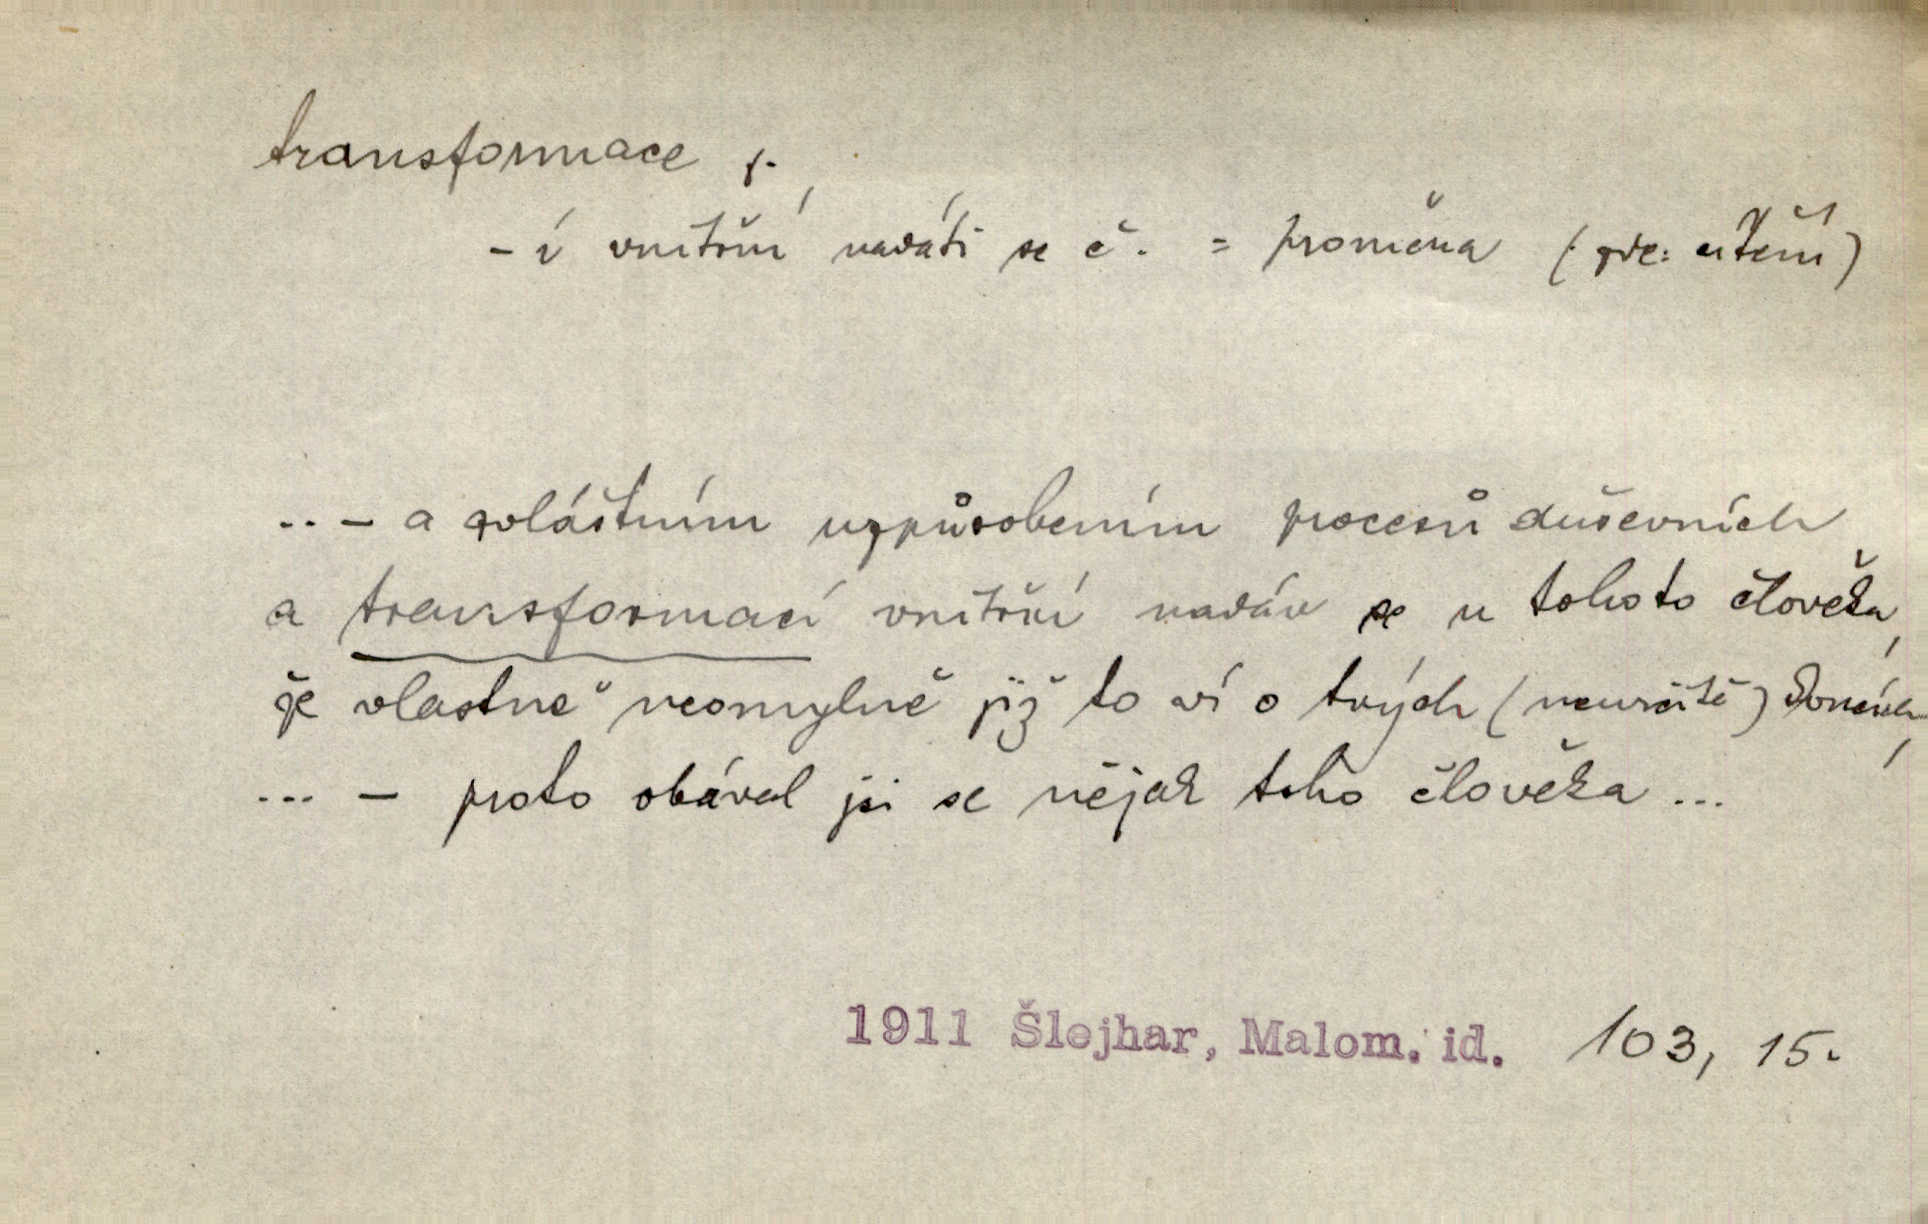 transformace f.
- í vnitřní nadáti se č. = proměna (zde: cítění)
... – a zvláštním uzpůsobením procesů duševních
a transformací vnitřní nadán se u tohoto člověka,
že vlastně neomylně již to ví o tvých (neurčitě)
... – proto obával jsi se nějak toho člověka ...
1911 Šlejhar, Malom. id. 103, 15.